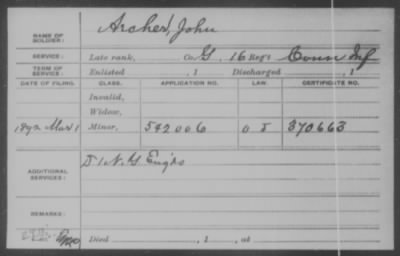 NAME OF SOLDIER: Archer, John
SERVICE: Late rank, Co. G, 16 Reg't Conn Inf
TERM OF SERVICE: Enlisted , 1 Discharged , 1
DATE OF FILING. CLASS. APPLICATION NO. LAW. CERTIFICATE NO.
Invalid,
Widow,
1892 Mar 1 Minor, 542006 370663
ADDITIONAL SERVICES: D 1 N.Y. Eng'rs
REMARKS:
Died , 1 , at